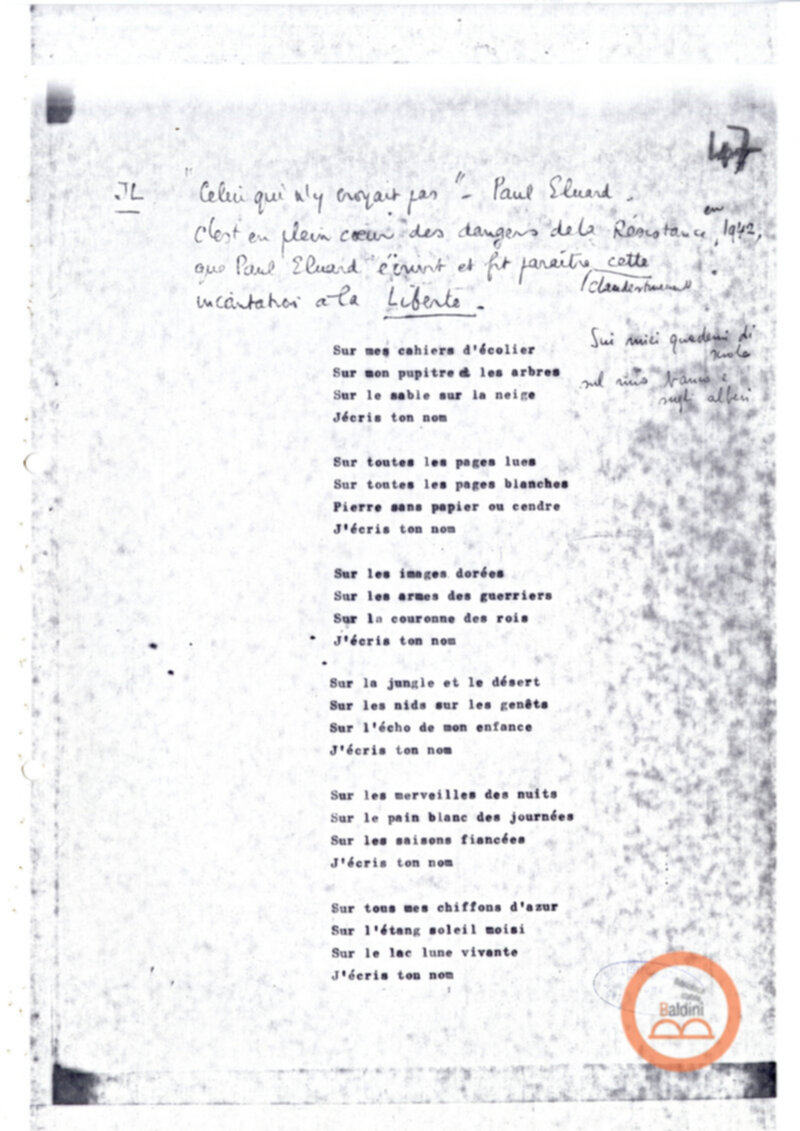 47
JL "Celui qui n'y croyait pas" - Paul Eluard.
C'est en plein cœur des dangers de la Résistance, en 1942,
que Paul Eluard écrivit et fit paraître cette
/clandestinement
incantation à la Liberté.
Sur mes cahiers d'écolier
Sur mon pupitre et les arbres
Sur le sable sur la neige
Jécris ton nom
Sui miei quaderni di
scuola
sul mio banco e
sugli alberi
Sur toutes les pages lues
Sur toutes les pages blanches
Pierre sans papier ou cendre
J'écris ton nom
Sur les images dorées
Sur les armes des guerriers
Sur la couronne des rois
J'écris ton nom
Sur la jungle et le désert
Sur les nids sur les genêts
Sur l'écho de mon enfance
J'écris ton nom
Sur les merveilles des nuits
Sur le pain blanc des journées
Sur les saisons fiancées
J'écris ton nom
Sur tous mes chiffons d'azur
Sur l'étang soleil moisi
Sur le lac lune vivante
J'écris ton nom
Baldini